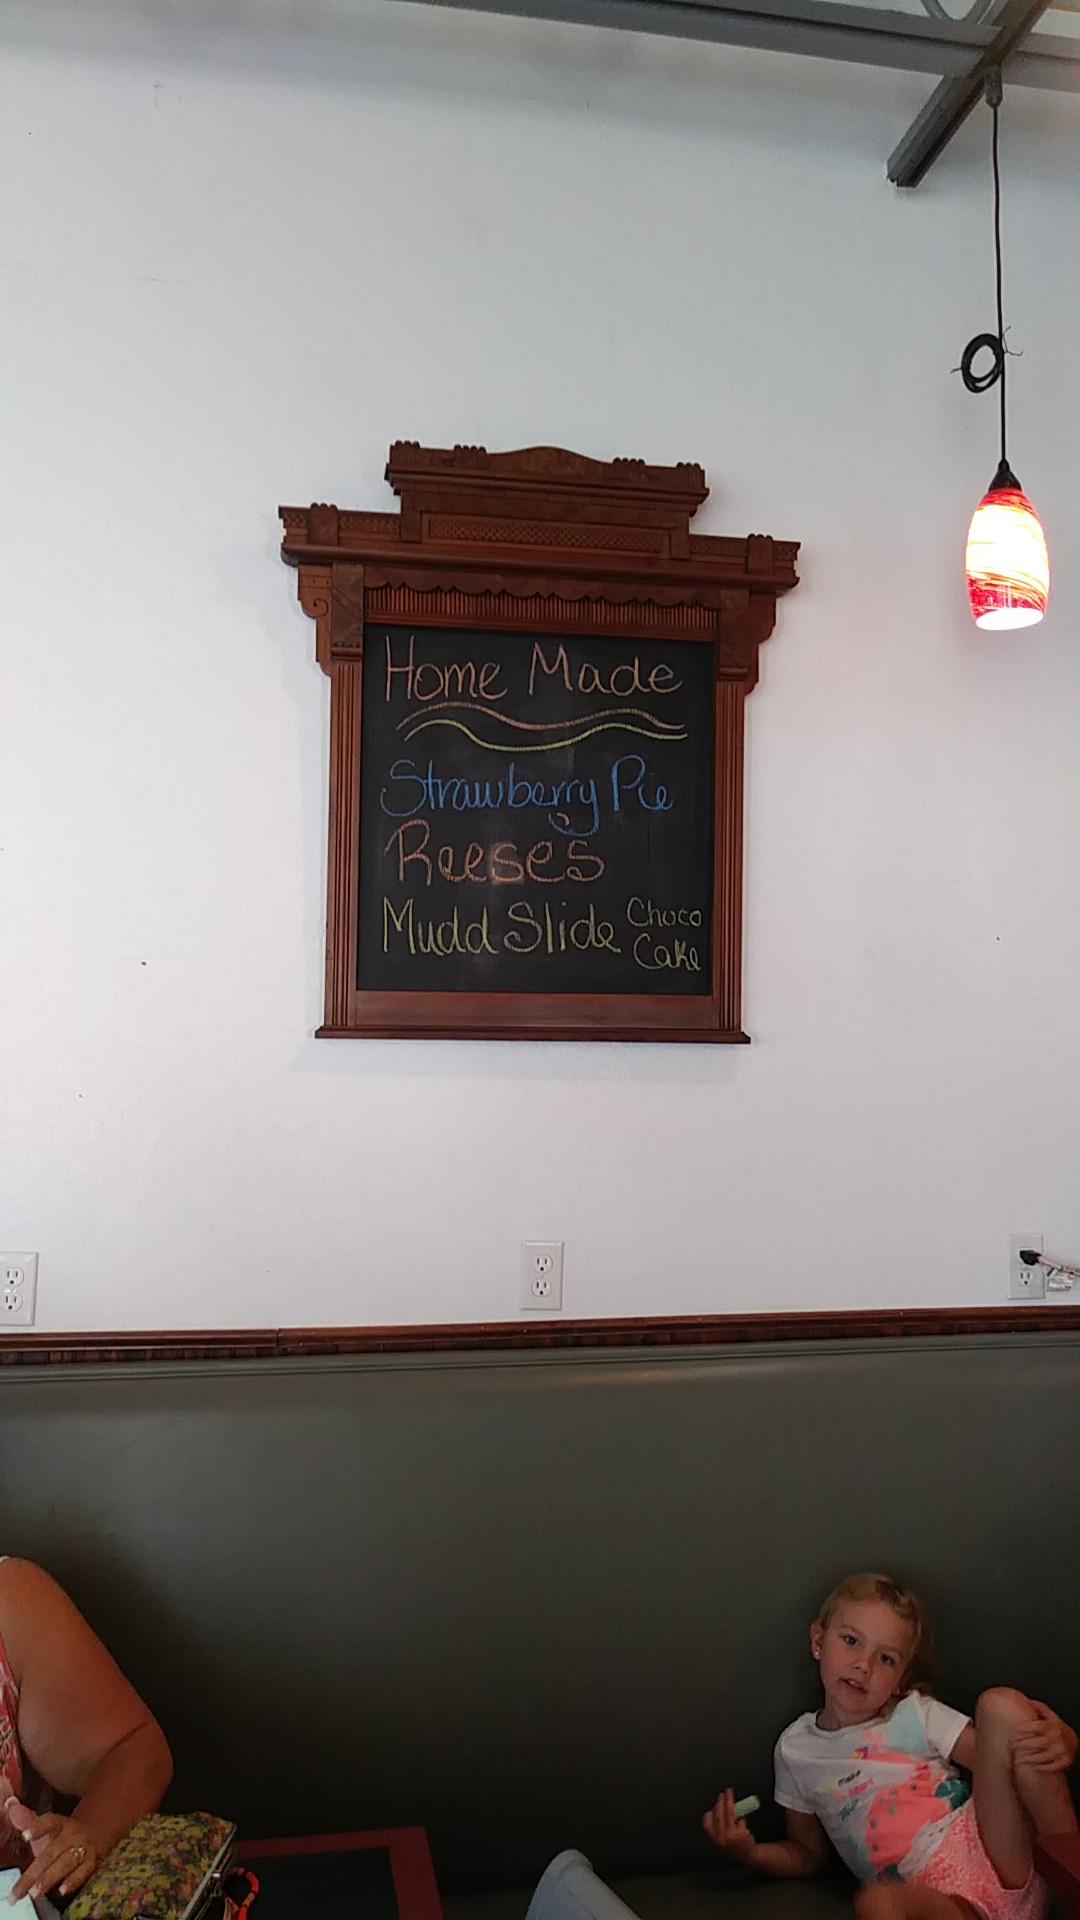 Home Made
Strawberry Pie
Reeses
Mudd Slide Choco
Cake
make
heart